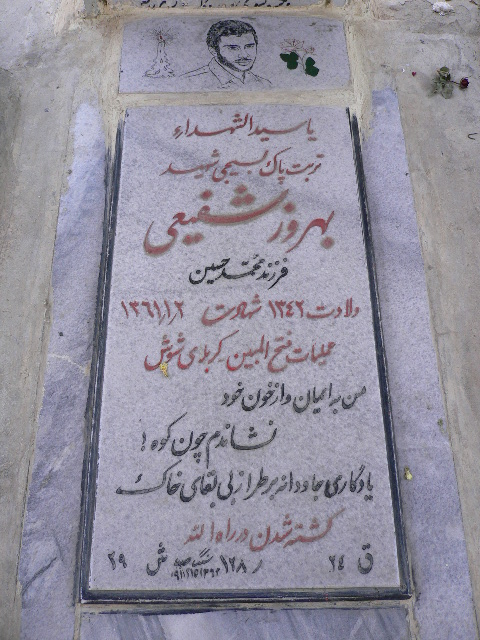 یا سید الشهداء
تربت پاک بسیجی شهید
بهروز شفیعی
فرزند محمد حسین
ولادت ۱۳۴۲ شهادت ۱۳۶۱/۱/۲
عملیات فتح المبین کربلای شوش
من به ایمان و از خون خود
نشاندم چون کوه!
یادگاری جاودانه بر طراز بی بقای خاک
کشته شدن در راه الله
ق ۲۴ ر ۱۲۸ ش ۲۹